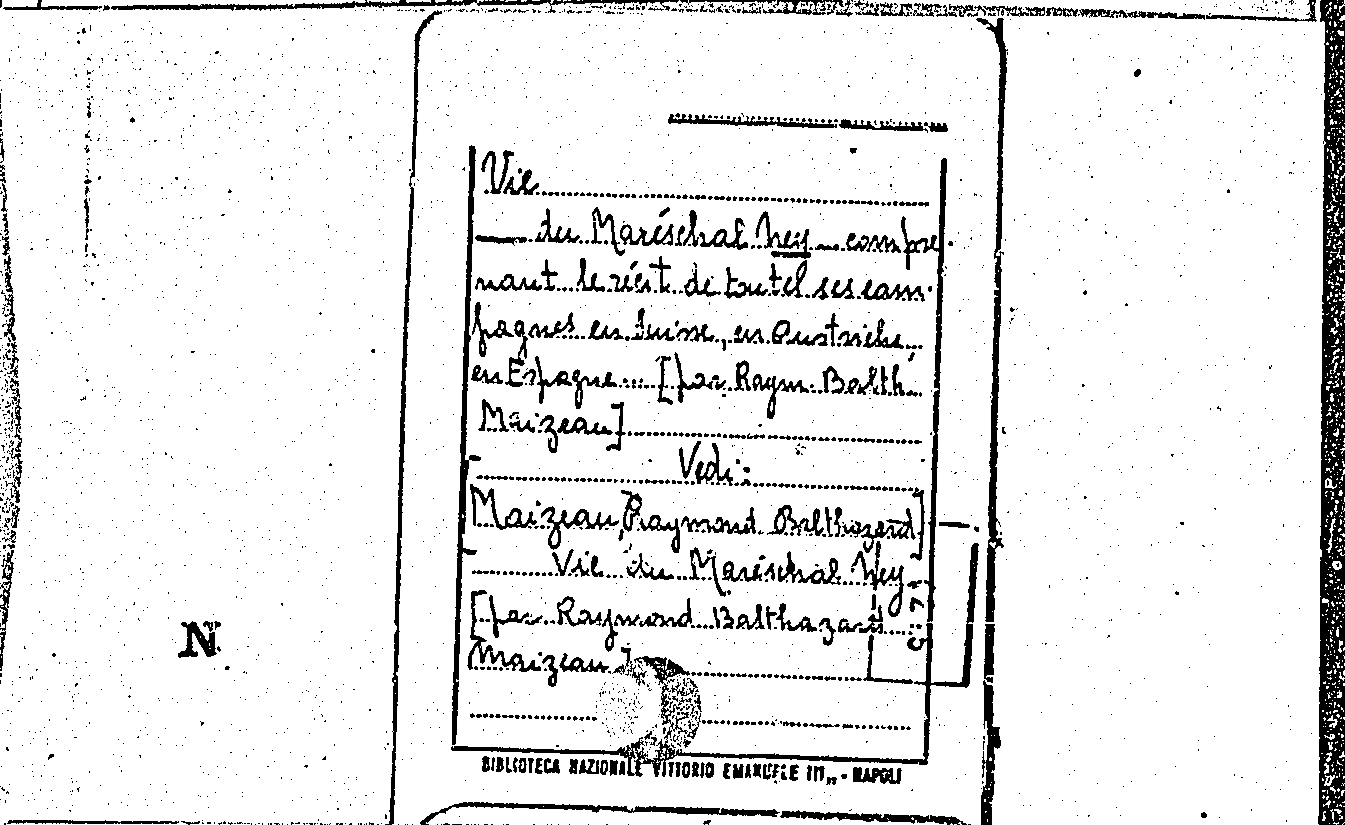 Vie
— du Maréschal Ney – compre-
nant le récit de toutes ses cam-
pagnes en Suisse, en Austriche,
en Espagne... [par Raym. Balth.
Maizeau]
Vedi:
Maizeau, Raymond Balthazard]
Vie du Maréschal Ney
[par Raymond Balthazard
Maizeau]
N
BIBLIOTECA NAZIONALE VITTORIO EMANUELE III„ - NAPOLI